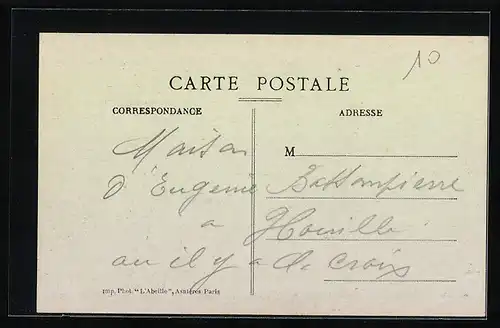 10
CARTE POSTALE
CORRESPONDANCE
ADRESSE
M
Maison
d'Eugenie Battompierre
a Houille
ou il y a la croix
Imp. Phot. "L'Abeille", Asnières-Paris